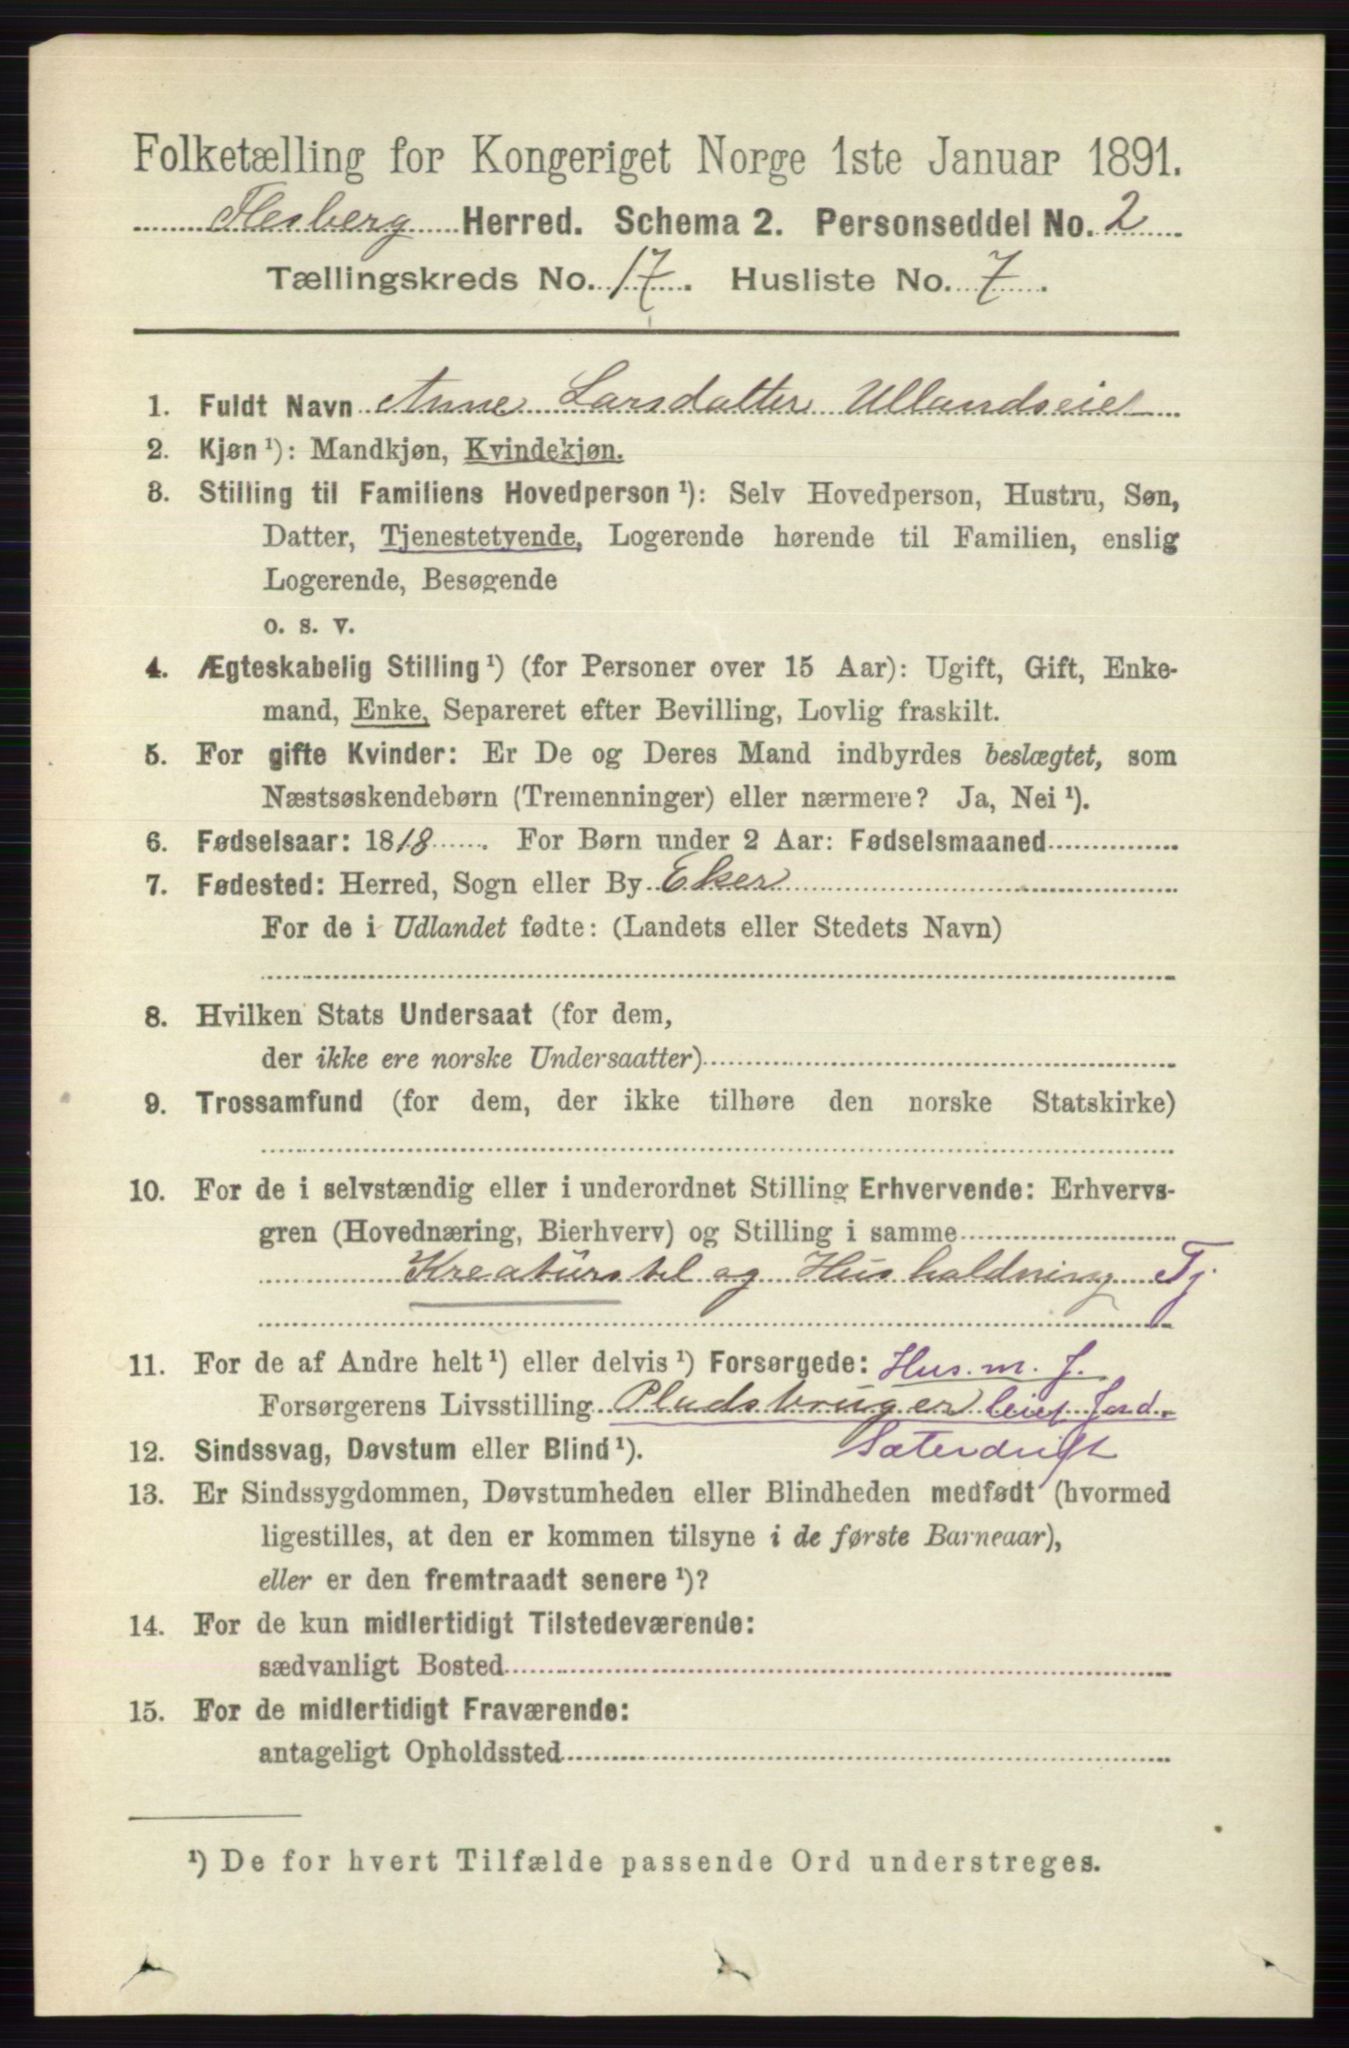 Folketælling for Kongeriget Norge 1ste Januar 1891.
Flesberg Herred. Schema 2. Personseddel No. 2
Tællingskreds No. 17. Husliste No. 7.
1. Fuldt Navn Anne Larsdatter Ullandseiet
2. Kjøn ¹): Mandkjøn, Kvindekjøn.
3. Stilling til Familiens Hovedperson ¹): Selv Hovedperson, Hustru, Søn,
Datter, Tjenestetyende, Logerende hørende til Familien, enslig
Logerende, Besøgende
o. s. v.
4. Ægteskabelig Stilling ¹) (for Personer over 15 Aar): Ugift, Gift, Enke-
mand, Enke, Separeret efter Bevilling, Lovlig fraskilt.
5. For gifte Kvinder: Er De og Deres Mand indbyrdes beslægtet, som
Næstsøskendebørn (Tremenninger) eller nærmere? Ja, Nei ¹).
6. Fødselsaar: 1818. For Børn under 2 Aar: Fødselsmaaned
7. Fødested: Herred, Sogn eller By Eker
For de i Udlandet fødte: (Landets eller Stedets Navn)
8. Hvilken Stats Undersaat (for dem,
der ikke ere norske Undersaatter)
9. Trossamfund (for dem, der ikke tilhøre den norske Statskirke)
10. For de i selvstændig eller i underordnet Stilling Erhvervende: Erhvervs-
gren (Hovednæring, Bierhverv) og Stilling i samme
Kreaturstel og Husholdning Tj.
11. For de af Andre helt ¹) eller delvis ¹) Forsørgede: Hus.m. J.
Forsørgerens Livsstilling Pladsbruger leiet Jord.
12. Sindssvag, Døvstum eller Blind ¹). Sæterdrift
13. Er Sindssygdommen, Døvstumheden eller Blindheden medfødt (hvormed
ligestilles, at den er kommen tilsyne i de første Barneaar),
eller er den fremtraadt senere ¹)?
14. For de kun midlertidigt Tilstedeværende:
sædvanligt Bosted
15. For de midlertidigt Fraværende:
antageligt Opholdssted
¹) De for hvert Tilfælde passende Ord understreges.